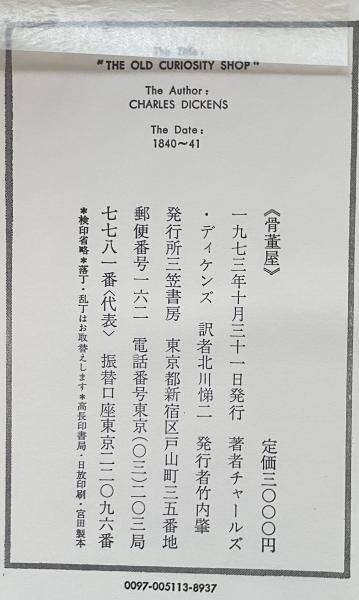 The Title:
"THE OLD CURIOSITY SHOP"
The Author:
CHARLES DICKENS
The Date:
1840～41
《骨董屋》　定価三〇〇〇円
一九七三年十月三十一日発行　著者チャールズ
・ディケンズ　訳者北川悌二　発行者竹内肇
発行所三笠書房　東京都新宿区戸山町三五番地
郵便番号一六二　電話番号東京(〇三)二〇三局
七七八一番〈代表〉　振替口座東京二二〇九六番
＊検印省略＊落丁・乱丁はお取替えします＊高長印書局・日放印刷・宮田製本
0097-005113-8937